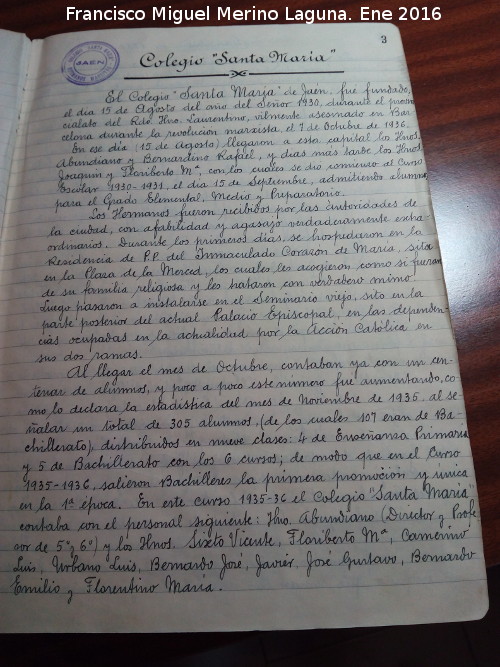 Francisco Miguel Merino Laguna. Ene 2016
3
JAEN
Colegio "Santa María"
El Colegio "Santa María" de Jaén, fue fundado,
el día 15 de Agosto del año del Señor 1930, durante el provin-
cialato del Rdo. Hno. Laurentino, vilmente asesinado en Bar-
celona durante la revolución marxista, el 7 de Octubre de 1936.
En ese día (15 de Agosto) llegaron a esta capital los Hnos.
Abundiano y Bernardino Rafael, y días más tarde los Hnos.
Joaquín y Floriberto Mª, con los cuales se dio comienzo al Curso
Escolar 1930-1931, el día 15 de Septiembre, admitiendo alumnos
para el Grado Elemental, Medio y Preparatorio.
Los Hermanos fueron recibidos por las autoridades de
la ciudad, con afabilidad y agasajo verdaderamente extra-
ordinarios. Durante los primeros días, se hospedaron en la
Residencia de P.P. del Inmaculado Corazón de María, sita
en la Plaza de la Merced, los cuales les acogieron como si fueran
de su familia religiosa y les trataron con verdadero mimo.
Luego pasaron a instalarse en el Seminario viejo, sito en la
parte posterior del actual Palacio Episcopal, en las dependen-
cias ocupadas en la actualidad por la Acción Católica en
sus dos ramas.
Al llegar el mes de Octubre, contaban ya con un cen-
tenar de alumnos, y poco a poco este número fue aumentando, co-
mo lo declara la estadística del mes de Noviembre de 1935. al se-
ñalar un total de 305 alumnos, (de los cuales 107 eran de Ba-
chillerato), distribuidos en nueve clases: 4 de Enseñanza Primaria
y 5 de Bachillerato con los 6 cursos; de modo que en el Curso
1935-1936, salieron Bachilleres la primera promoción y única
en la 1ª época. En este curso 1935-36 el Colegio "Santa María"
contaba con el personal siguiente: Hno. Abundiano (Director y Profe-
sor de 5º y 6º) y los Hnos. Sixto Vicente, Floriberto Mª, Camerino
Luis, Urbano Luis, Bernardo José, Javier José Gustavo, Bernardo
Emilio y Florentino María.